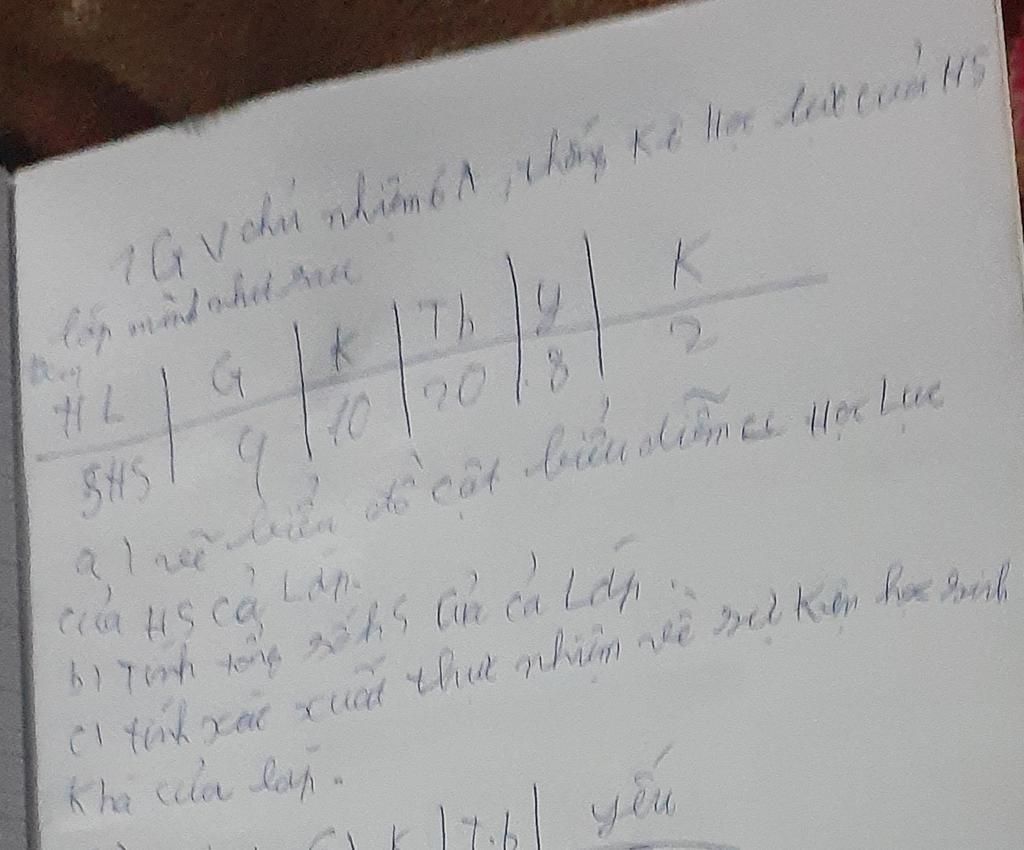 1 GV chủ nhiệm 6A, thống kê Học lực của HS
lớp mình như sau
HL | G | K | Tb | y | K
SHS | 9 | 10 | 20 | 8 | 2
a) vẽ biểu đồ cột biểu diễn Học Lực
của HS cả Lớp.
b) Tính tổng số hS của cả Lớp.
c) tính xác xuất thực nhiệm về sự kiện học sinh
khá của lớp.
K | T.b | yếu